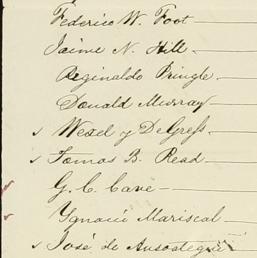 Federico W. Foot
Jaime N. Hill
Reginaldo Pringle
Donald Murray
Wexel y DeGress
Tomas B. Read
G. C. Cave
Ygnacio Mariscal
José de Ansoategui